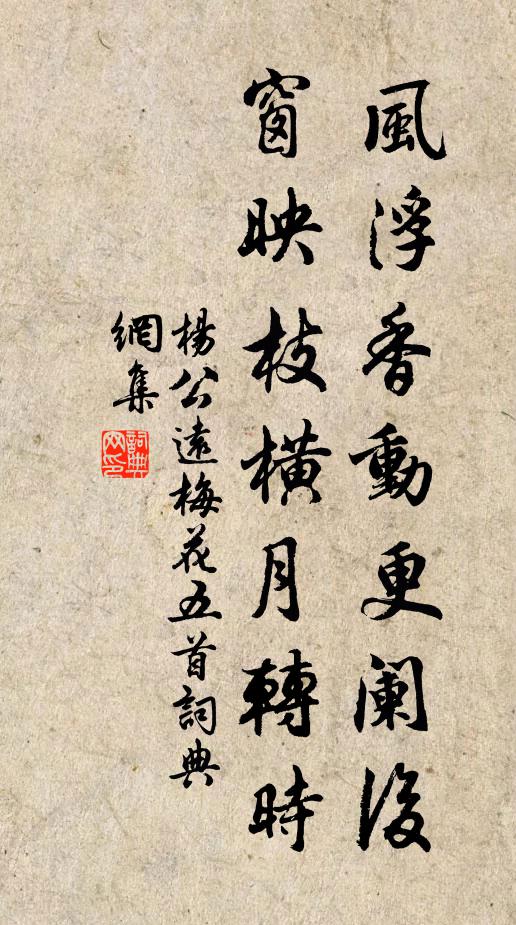 風浮香動更阑後
窗映枝橫月轉時
楊公遠梅花五首詞典
網集
詞典网印